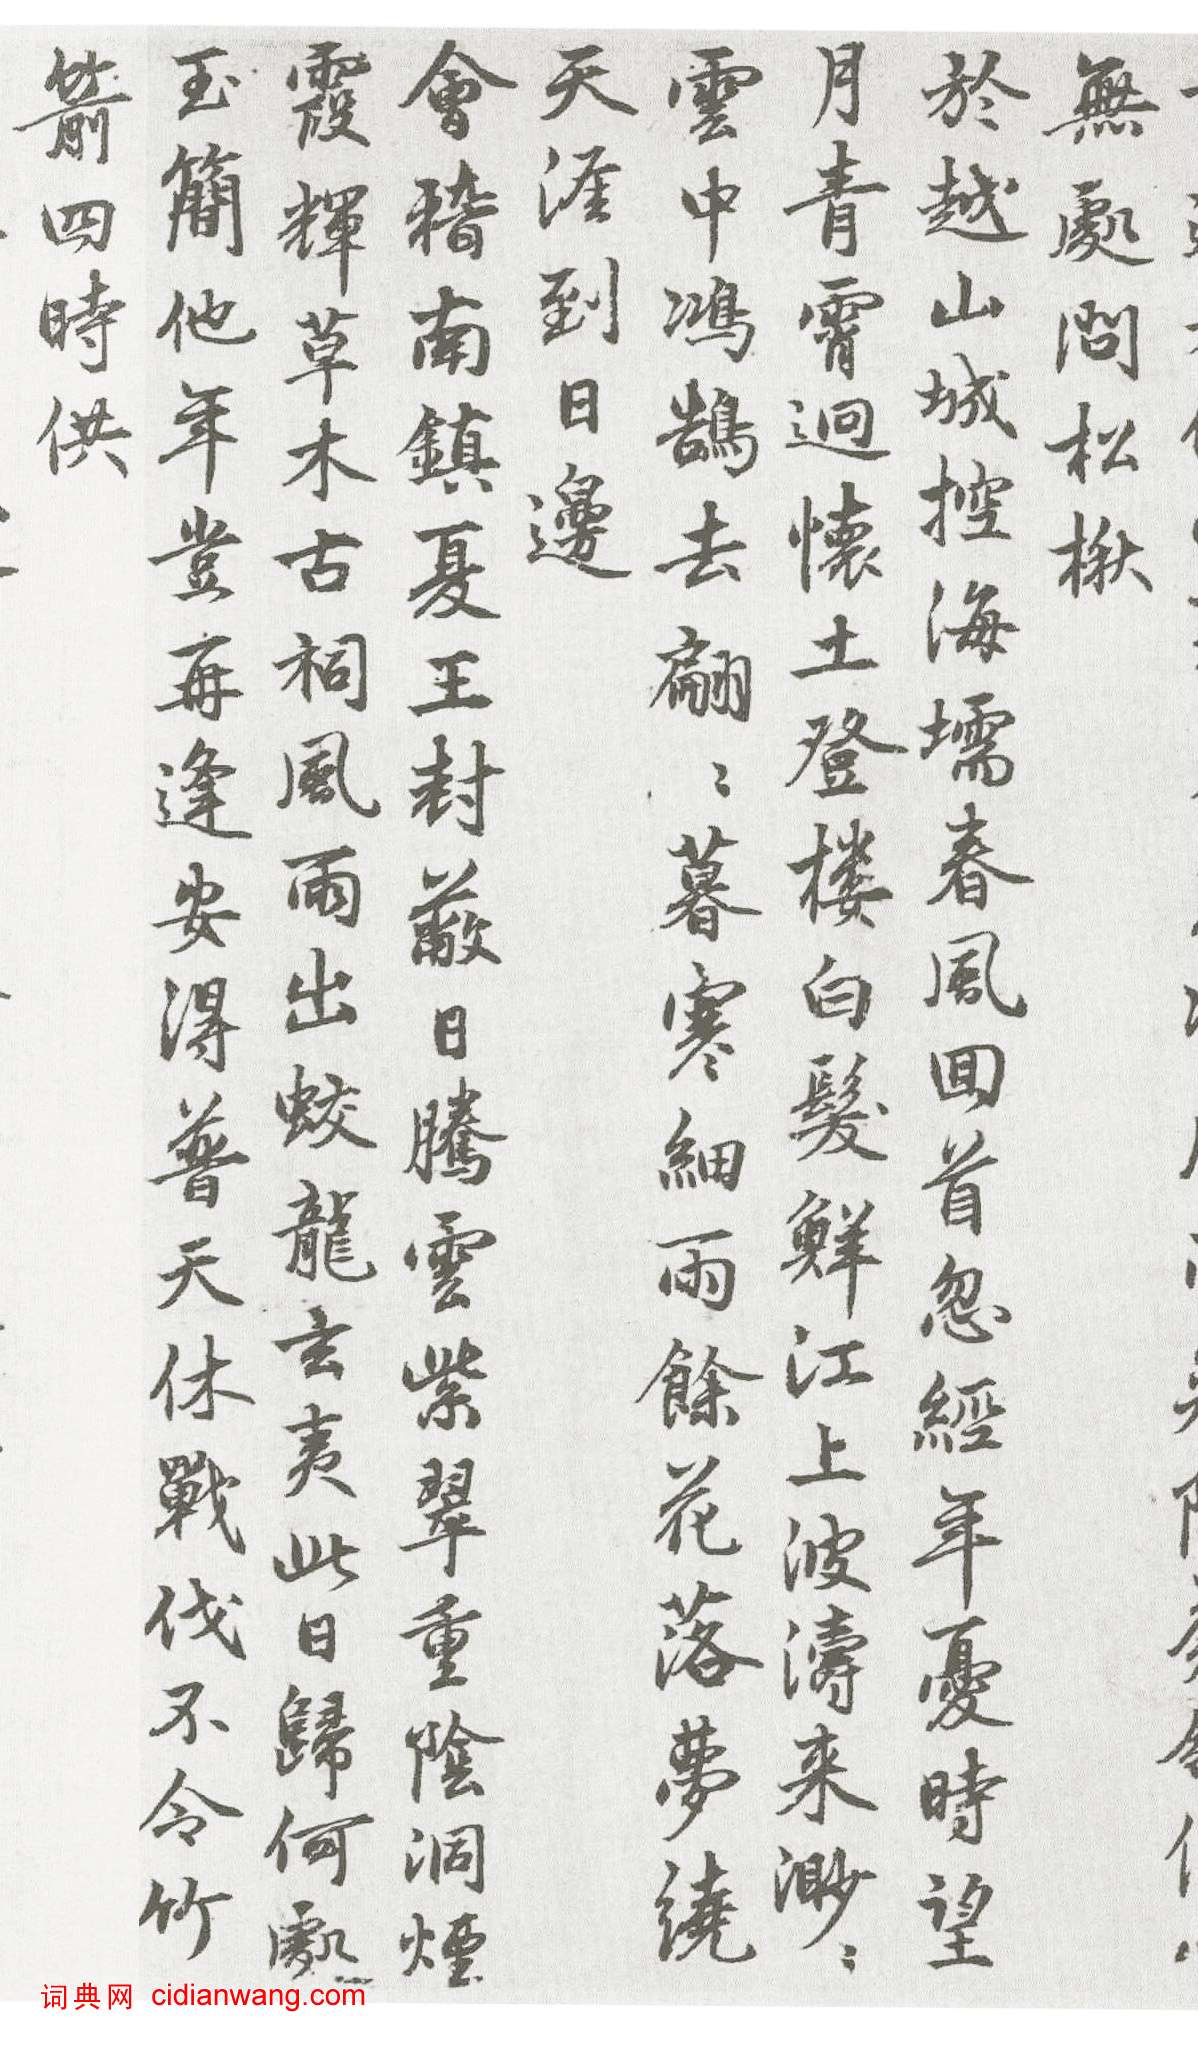 無處問松楸
於越山城控海壖春風回首忽經年憂時望
月青霄迥懷土登樓白髮鮮江上波濤来渺〻
雲中鴻鵠去翩〻暮寒細雨餘花落夢繞
天涯到日邊
會稽南鎮夏王封蔽日騰雲紫翠重陰洞煙
霞輝草木古祠風雨出蛟龍玄夷此日歸何處
玉簡他年豈再逢安得普天休戰伐不令竹
箭四時供
词典网 cidianwang.com